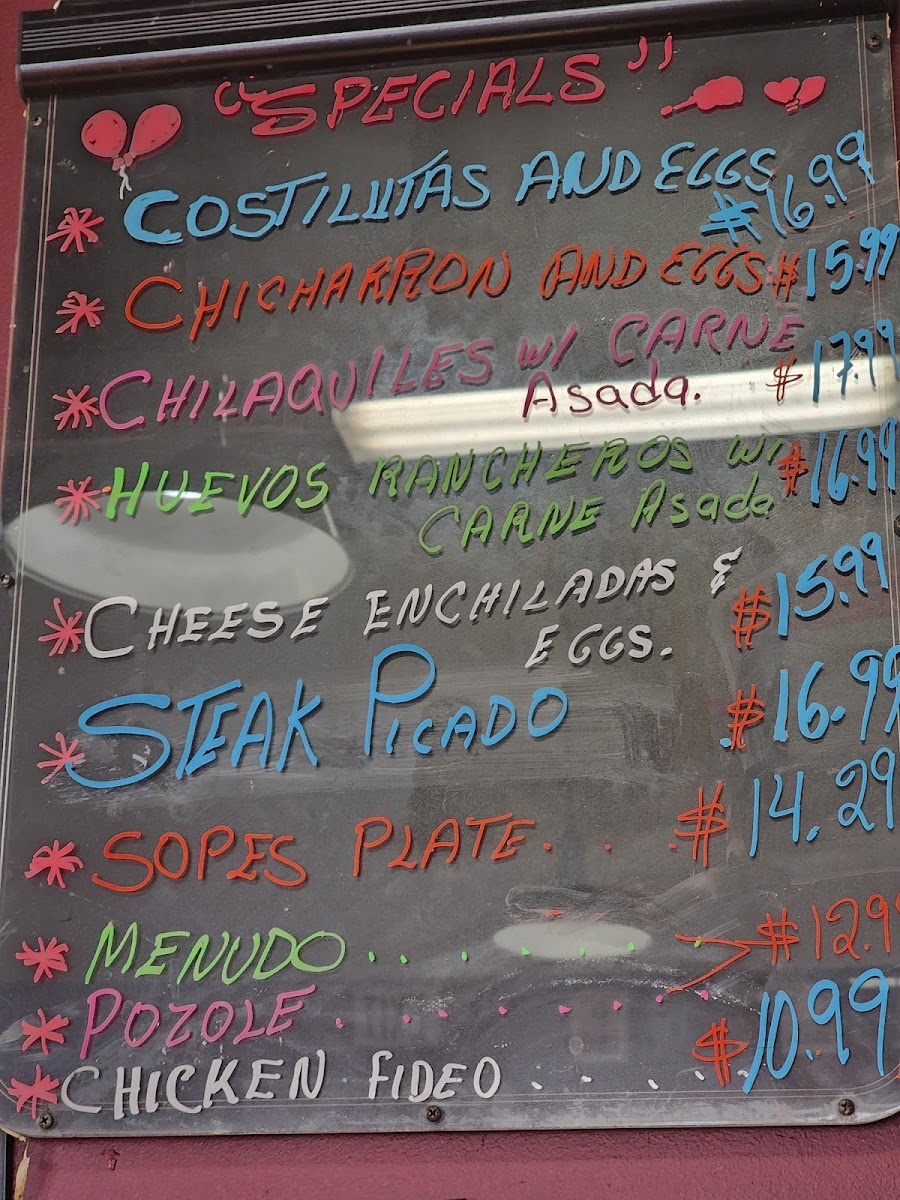 "SPECIALS"
* COSTILLITAS AND EGGS $16.99
* CHICHARRON AND EGGS $15.99
* CHILAQUILES w/ CARNE
Asada. $17.99
* HUEVOS RANCHEROS w/ $16.99
CARNE Asada
* CHEESE ENCHILADAS & $15.99
EGGS.
* STEAK PICADO $16.99
* SOPES PLATE. . . $14.29
* MENUDO . . . . . . . $12.99
* POZOLE . . . . . . . .
* CHICKEN FIDEO . . . . . $10.99